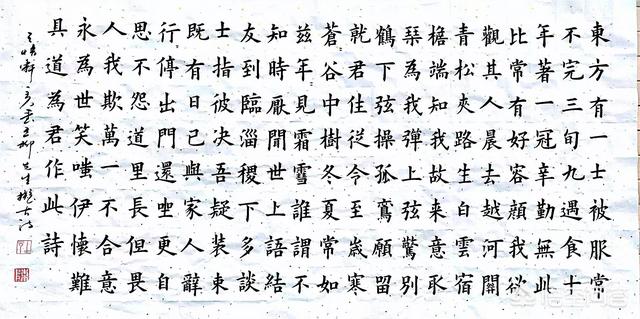 東方有一士被服常
不完三旬九遇食十
年著一冠辛勤無此
比常有好容顏我欲
觀其人晨去越河關
青松夾路生白雲宿
檐端知我故來意取
琴為我彈上弦驚別
鶴下弦操孤鸞願留
就君住從今至歲寒
蒼々谷中樹冬夏常如
茲年々見霜雪誰謂不
知時厭聞世上語結
友到臨淄稷下多談
士指彼決吾疑裝束
既有日已與家人辭
行停出門還坐更自
思不怨道里長但畏
人我欺萬一不合意
永為世笑嗤伊懷難
具道為君作此詩